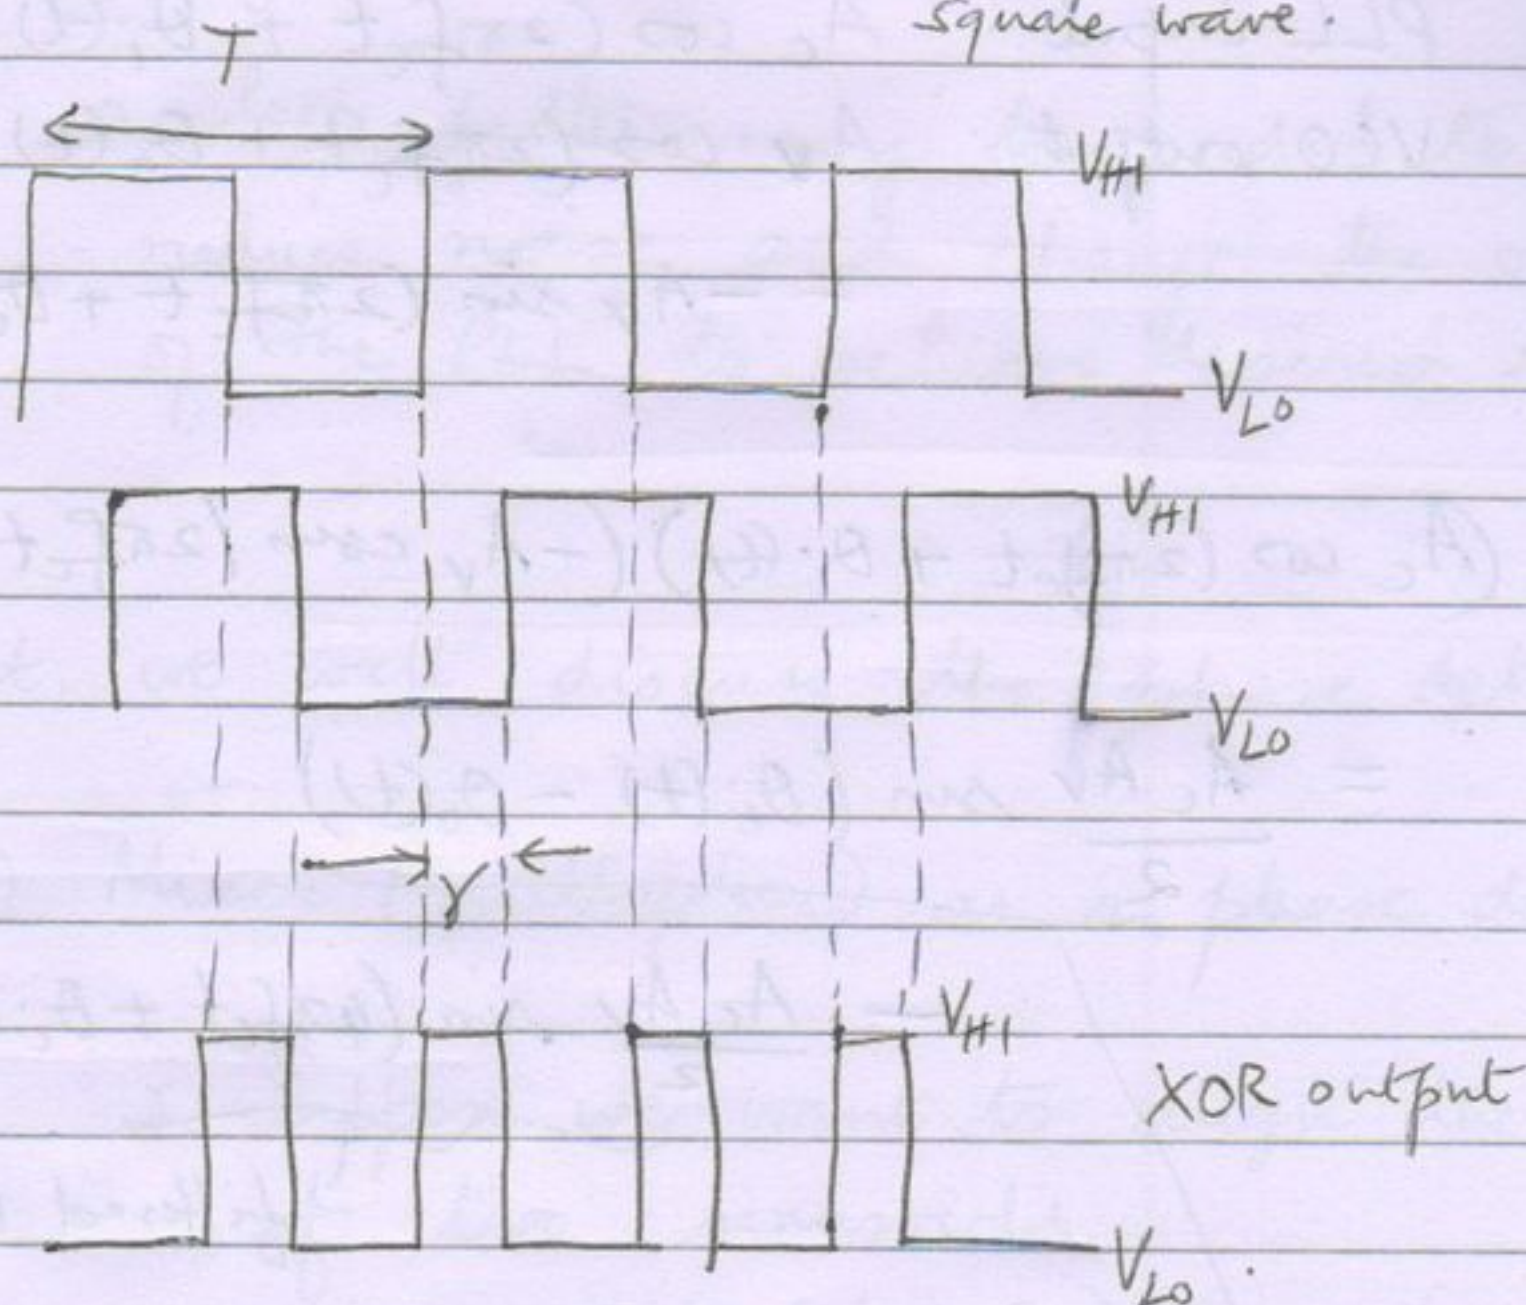 square wave.
T
VHI
VLO
VHI
VLO
γ
VHI
XOR output
VLO